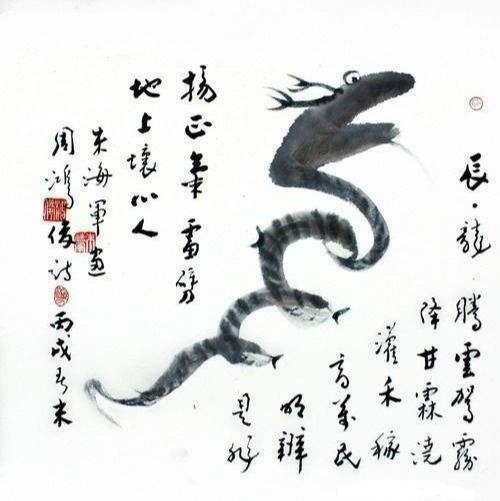 辰·龍
騰雲駕霧
降甘霖澆
灌禾稼
高萬民
明辨
是非
揚正氣雷劈
地上壞心人
朱海軍畫
周鴻俊詩
丙戌春末